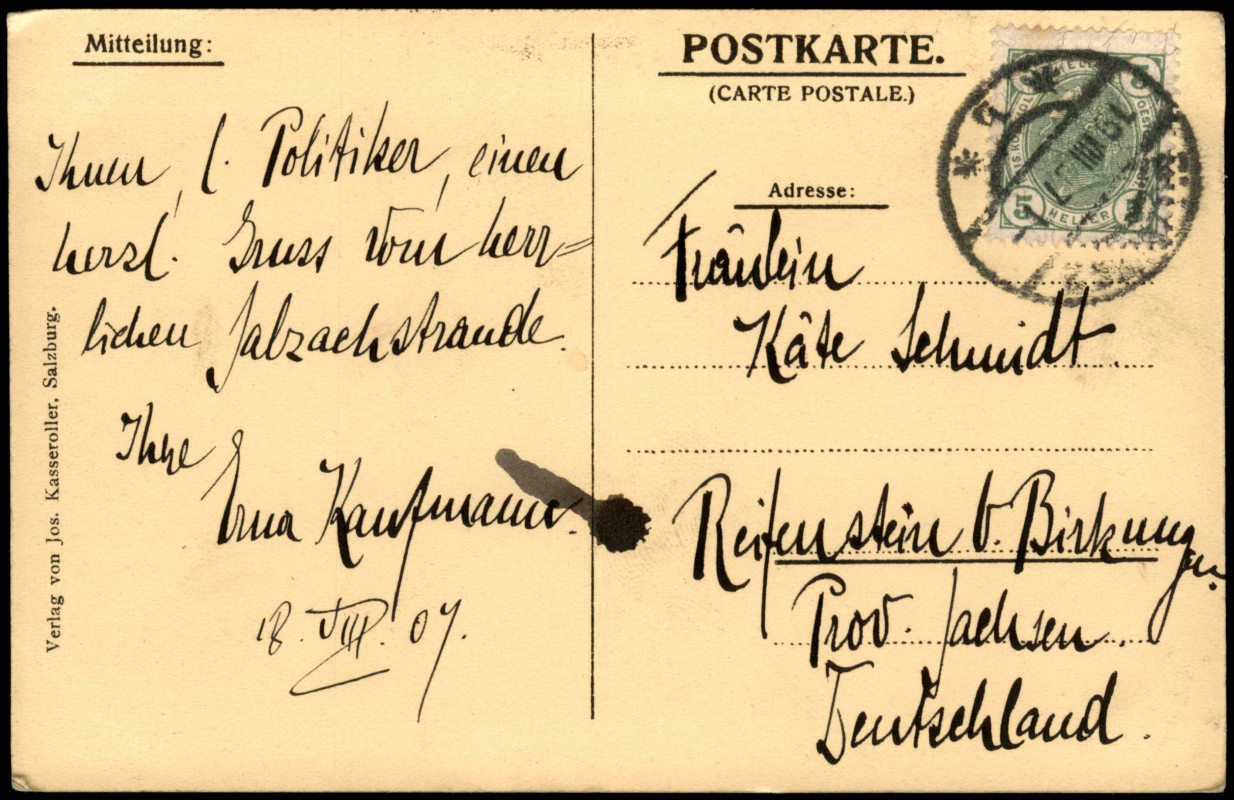 Mitteilung:
Ihnen, l. Politiker, einen
herzl. Gruss vom herr=
lichen Salzachstrande.
Ihre
Erna Kaufmann.
18. VIII. 07.
Verlag von Jos. Kasseroller, Salzburg.
POSTKARTE.
(CARTE POSTALE.)
Adresse:
Fräulein
Käte Schmidt.
Reifenstein b. Birkungen.
Prov. Sachsen.
Deutschland.
5
5
5
HELLER